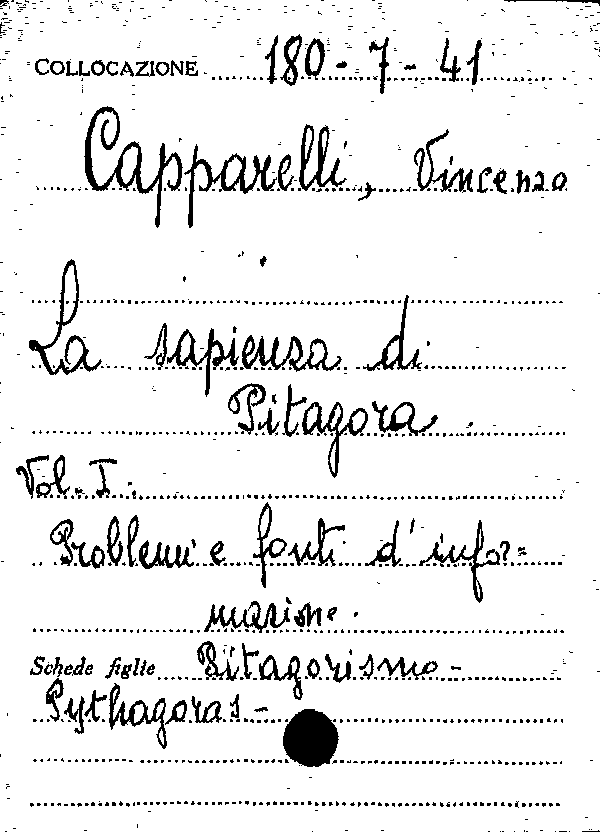 COLLOCAZIONE 180-7-41
Capparelli, Vincenzo
La sapienza di
Pitagora.
Vol. I:
Problemi e fonti d'infor=
mazione.
Schede figlie Pitagorismo -
Pythagoras -